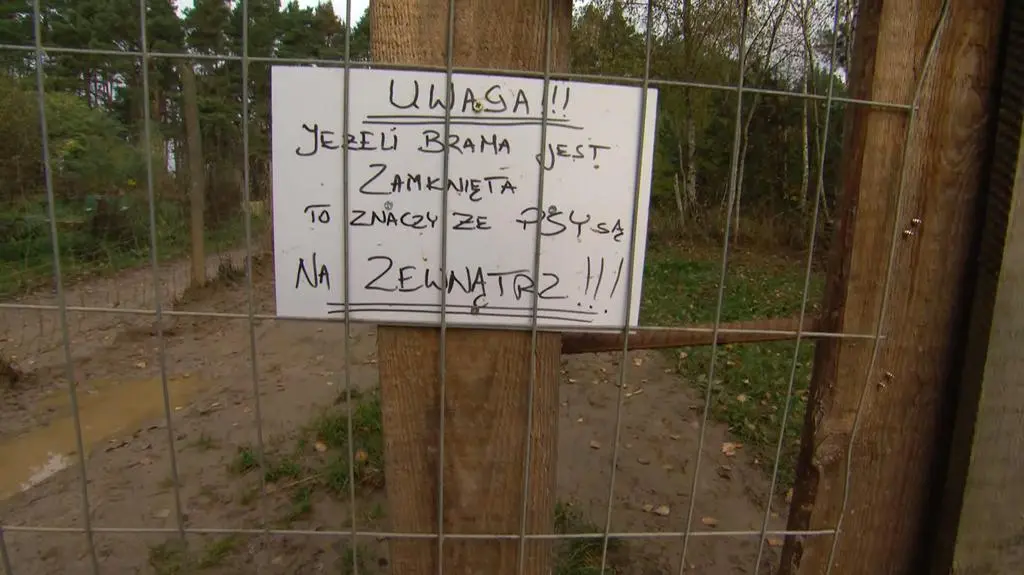 UWAGA!!!
JEŻELI BRAMA JEST
ZAMKNIĘTA
TO ZNACZY ZE PSY SĄ
NA ZEWNĄTRZ!!!